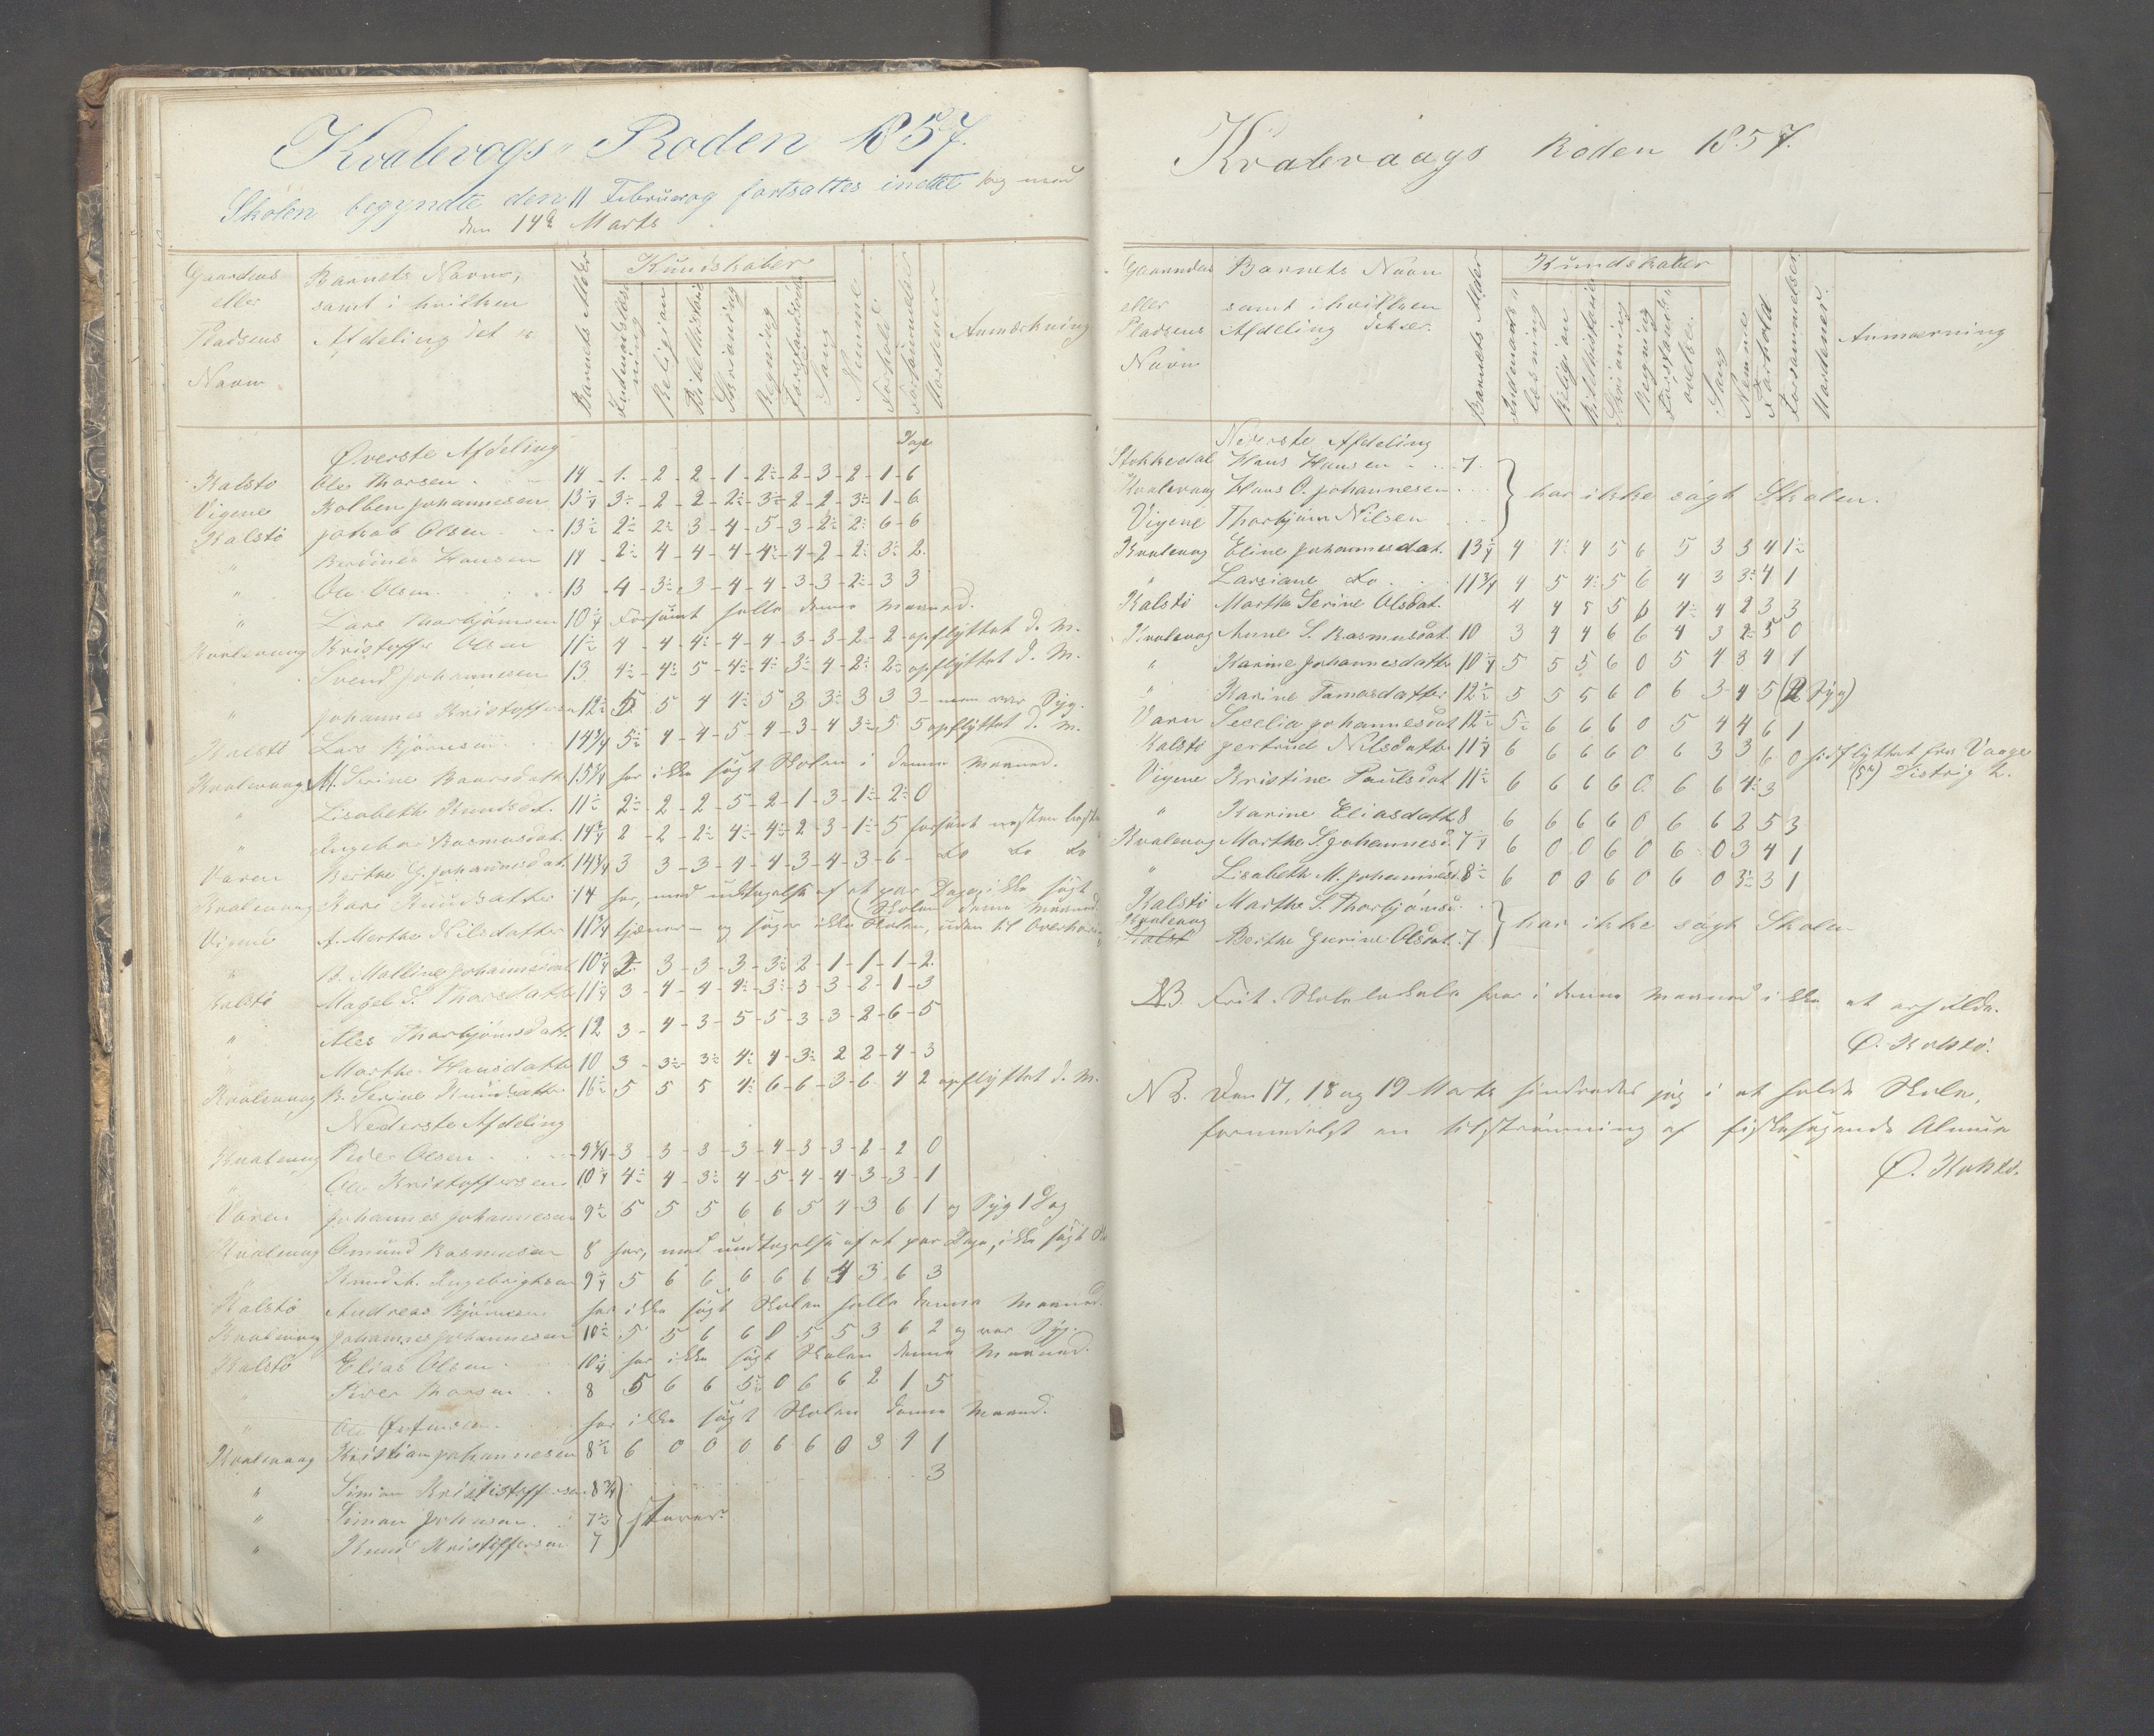 Kvalevogs Roden 1857.
Skolen begyndte den 11 Februar og fortsattes indtil og med
den 14de Marts
Gaardens eller Pladsens Navn
Barnets Navn, samt i hvilken Afdeling det er
Barnets Alder
Kundskaber
Indenadslæsning
Religion
Bibelhistorie
Skrivning
Regning
Forstandsøvelse
Sang
Nemme
Forhold
Forsømmelser
Vordener
Anmærkning
Øverste Afdeling Dage
Kalstø Ole Thorsen 14 - 1 - 2 - 2 - 1 - 2÷ - 2 - 3 - 2 - 1 - 6
Vigene Kolben Johannesen 13¼ 3÷ - 2 - 2 - 2÷ - 3÷ - 2 - 2 - 3÷ - 1 - 6
Kalstø Jakob Olsen 13½ 2÷ - 2÷ 3 - 4 - 5 - 3 - 2÷ 2÷ 6 - 6
" Berdines Hansen 11 - 2÷ - 4 - 4 - 4 - 4÷ - 4 - 2 - 2÷ 3÷ 2
" Ole Olsen 13 - 4 - 3÷ 3 - 4 - 4 - 3 - 3 - 2÷ - 3 3
" Lars Thorbjörnsen 10¼ Forsömt hele denne Maaned.
Kvalevaag Kristoffer Olsen 11½ 4 - 4 - 4÷ - 4 - 4 - 3 - 3 - 2 - 2 - opflyttet d. M.
" Svend Johannesen 13 4÷ - 4÷ 5 - 4÷ - 4÷ 3÷ - 4 - 2÷ 2÷ opflyttet d. M.
" Johannes Kristoffersen 12½ 5 5 4 4÷ 5 3 3÷ 3 3 3 - men var Syg.
Kalstö Lars Björnsen 14¾ 5÷ - 4 - 4 - 5 - 4 - 3 - 4 3÷ 5 5 opflyttet d. M.
Kvalevaag M. Serine Baarsdatt. 13¾ har ikke søgt Skolen i denne Maaned.
" Lisabeth Knudsdt. 11½ 2÷ - 2 - 2 - 5 - 2 - 1 - 3 - 1÷ - 2÷ 0
" Ingebor Rasmusdat. 14¾ 2 - 2 - 2÷ 4÷ - 4÷ 2 - 3 - 1÷ - 5 forsömt næsten hele
Varen Berthe G. Johannesdat. 14¾ 3 3 - 3 - 4 - 4 - 3 - 4 - 3 - 6 - do do do
Kvalevaag Kari Knudsatter 14 har, med undtagelse af et par Dage, ikke søgt Skolen denne Maaned.
Vigene A. Marthe Nilsdatter 11¾ tjener - og søger ikke Skolen, uden til Overhøring
" B. Malline Johannesdat. 10¼ 2 3 - 3 - 3 - 3÷ 2 - 1 - 1 - 1 - 2
Kalstö Magel S. Thorsdatte 11¼ 3 - 4 - 4 - 4÷ - 3÷ - 3 - 3 - 2 - 1 - 3
" Ales Thorbjörnsdatt. 12 3 - 4 - 3 - 5 - 5 - 3 - 3 - 2 - 6 - 5
" Marthe Hansdatte 10 3 - 3÷ - 3÷ 4÷ 4 - 3÷ 2 2 - 4 - 3
Kvalevaag B. Serine Knudsatte 16½ 5 5 5 4÷ 6 - 6 - 3 - 6 4 2 opflyttet d. M.
Nederste Afdeling
Kvalevaag Peder Olsen 9¾ - 3 - 3 - 3 - 3 - 4 - 3 - 3 - 2 - 2 0
" Ole Kristoffersen 10¼ 4÷ - 4 - 3÷ - 4 - 5 - 4 - 4 - 3 - 3 - 1
Varen Johannes Johannesen 9½ 5 5 5 6 6 5 4 - 3 6 1 og Syg 1 Dag
Kvalevaag Gmund Rasmusen 8 har, med undtagelse af et par Dage, ikke søgt Sk
" Knud A. Ingebrigtsen 9¼ 5 6 6 6 6 6 4 3 6 3
Kalstö Andreas Björnsen har ikke søgt Skolen hele denne Maaned.
Kvalevaag Johannes Johannesen 10½ 5 5 6 6 0 5 5 3 6 2 og var Syg.
Kalstö Elias Olsen 10¼ har ikke søgt Skolen denne Maaned.
" Iver Thorsen 8 5 6 6 5÷ 0 6 6 2 1 5
" Ole har ikke søgt Skolen denne Maaned.
Kvalevaag Kristian Johannesen 8½ 6 0 0 0 6 6 0 3 4 1
" Simon Krististoffersen 8¾ 3
" Simon Johnsen 7½
" Knud Kristiffersen 7
Kvalevaags Roden 18.57.
Gaarndens eller Pladsens Navn
Barnets Navn samt i hvilken Afdeling det er.
Barnets Alder
Kundskaber
Indenads læsning
Religion
Bibelhistorie
Skrivning
Regning
Forstands øvelse.
Sang
Nemme
Forhold
Forsømmelser
Vardener.
Anmærning
Nederste Afdeling
Stokkedal Hans Hansen 7.
Kvalevaag Hans O. Johannesen } har ikke søgt Skolen.
Vigene Thorbjörn Nilsen
Kvalevag Eline Johannesdat. 13¼ 4 4÷ 4 5 6 5 3 3 4 1÷
" Larsiane do 11¾ 4 5 4÷ 5 6 4 3 3÷ 4 1
Kalstö Marthe Serine Olsdat. 4 4 5 5 6 4÷ 4 2 3 3
Kvalevag Anne S. Rasmusdat. 10 3 4 4 6 6 4 3 2÷ 5 0
" Karine Johannesdatte 10¼ 5 5 5 6 0 5 4 3 4 1
" Karine Tamasdatter 12½ 5 5 5 6 0 6 3 4 5 (2 Syg)
Varn Secelia Johannesdat 12½ 5÷ 6 6 6 0 5 4 4 6 1
Kalstö Gertrud Nilsdatte 11¼ 6 6 6 6 0 6 3 3 6 0 indflyttet fra Vaage
Vigene Kristine Paulsdat 11½ 6 6 6 6 0 6 6 4÷ 3 Distrig
" Karine Eliasdatte 8 6 6 6 6 0 6 6 2 5 3
Kvalevag Marthe S. Johannesd. 7¼ 6 0 0 6 0 6 0 3 4 1
" Lisabeth M. Johannesd. 8½ 6 0 0 6 0 6 0 3÷ 3 1
Kalstö Marthe S. Thorbjörnsd.
Kvalevag Kalst Berthe Gurine Olsdat. 7 } har ikke søgt Skolen
NB. Frit Skolelokale har i denne Maaned ikke at erholde.
O. Kalstø.
NB. Den 17, 18 og 19 Marts hindredes jeg i at holde Skole,
formedelst en tilströmning af fiskesøgende Almue
O. Kalstø.